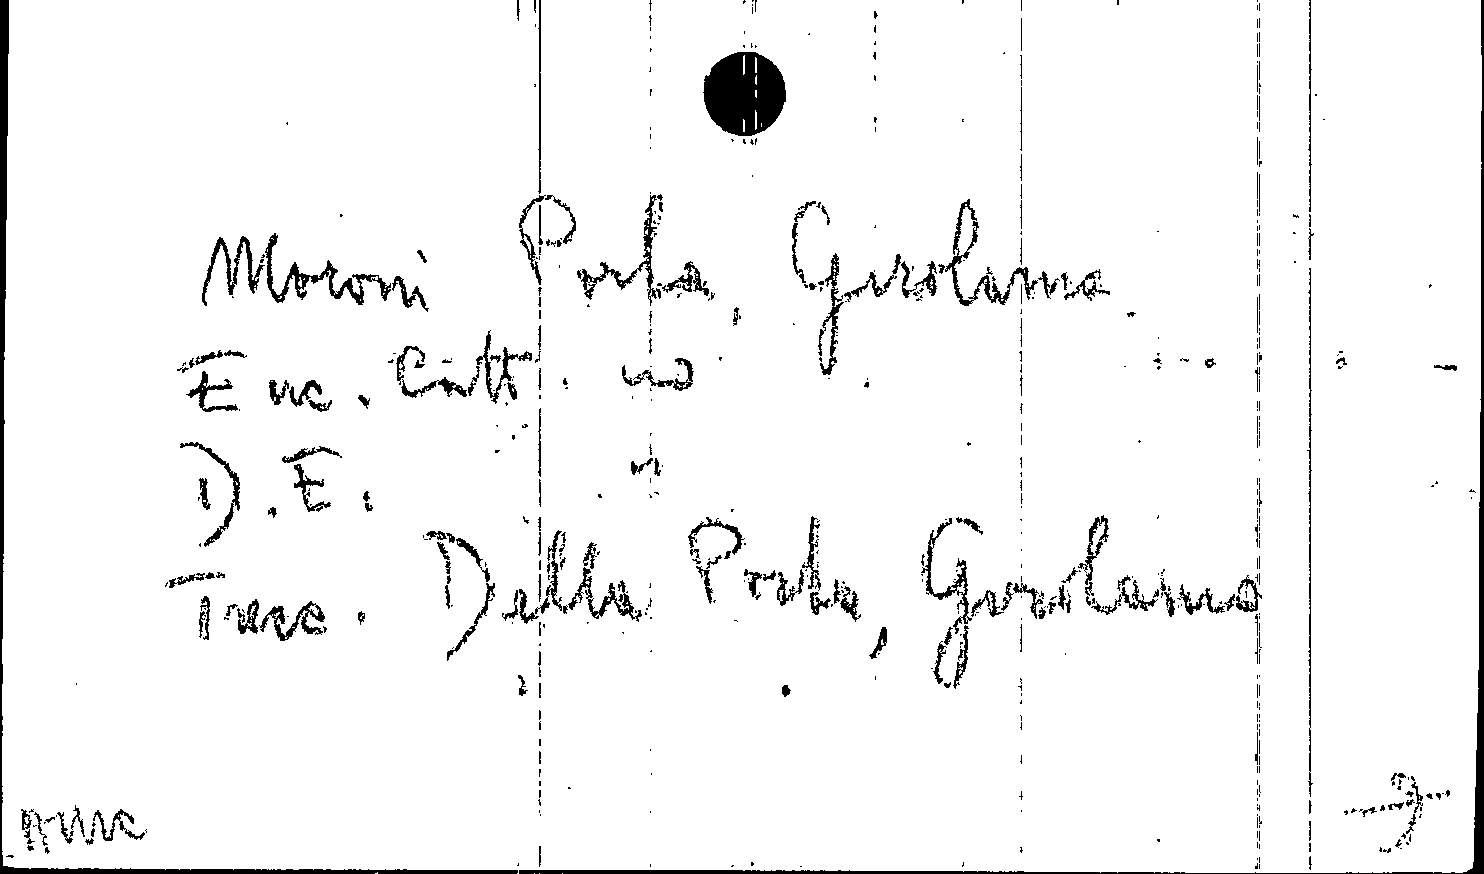 Moroni Porta, Girolama
Enc. Catt. no
D.E. "
Trecc. Della Porta, Girolamo